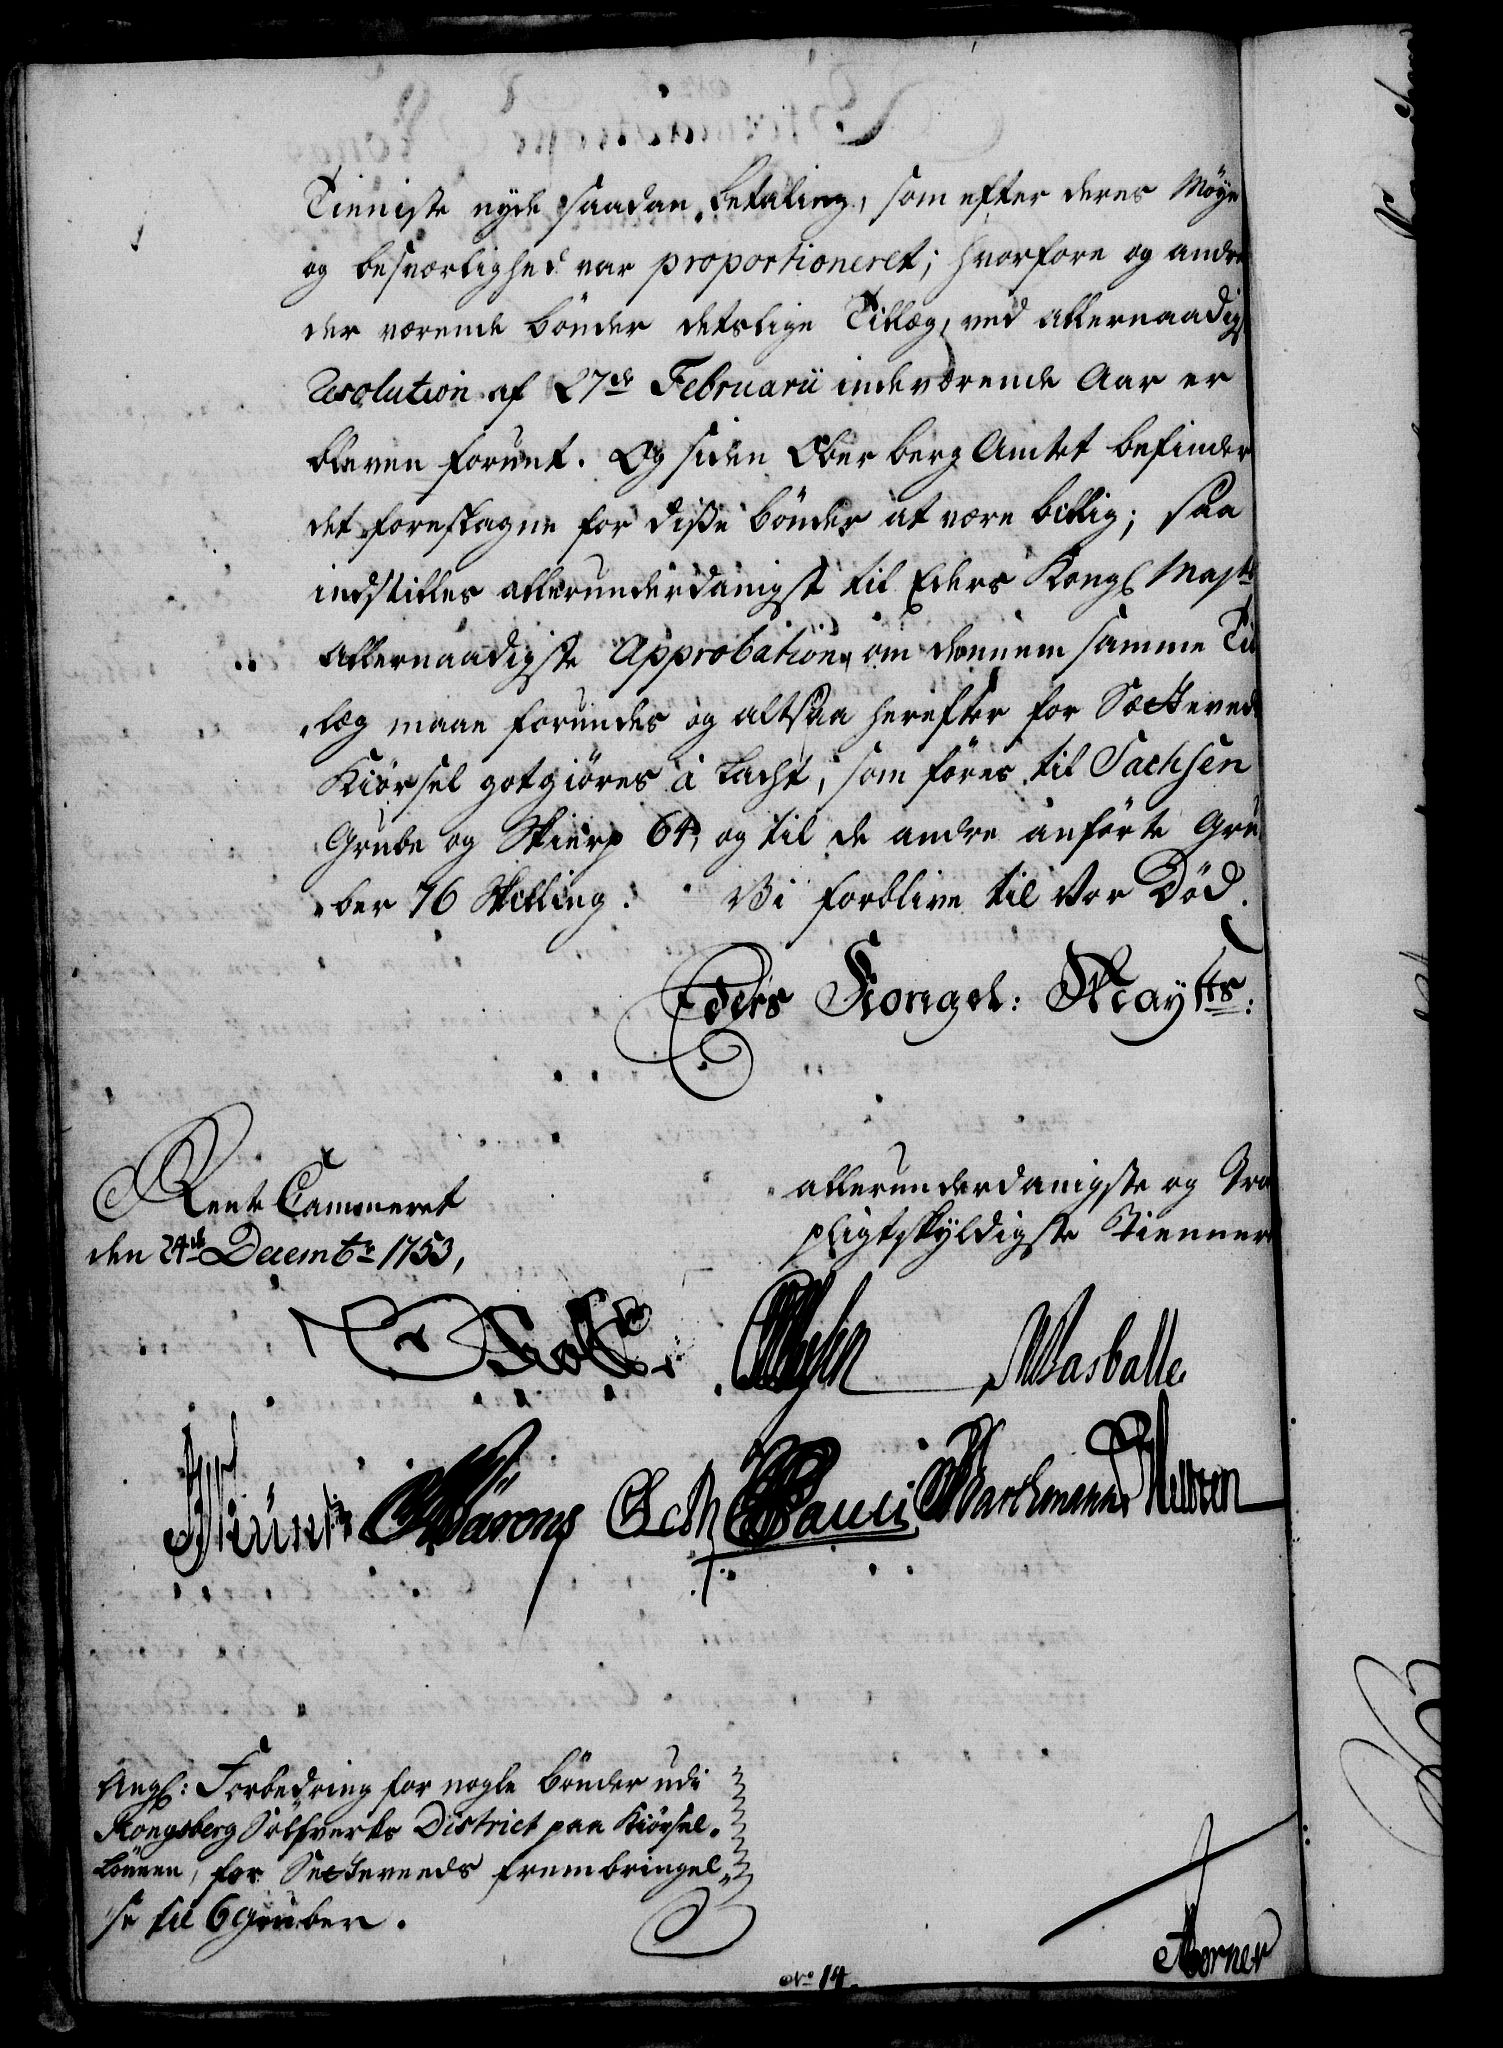 Tieniste nyde saadan betaling, som efter deres Möye
og besværlighed var proportioneret; hvorfore og andre
der værende bönder detslige Tillæg, ved allernaadigst
Resolution af 27de Februarii indeværende Aar er
bleven forunt. Og siden Ober berg Amtet befinder
det forestagne for disse bönder at være billig; saa
indstilles allerunderdanigst til Eders Kongl Mayts
allernaadigste Approbation, om dennem samme Til
læg maae forundes og altsaa herefter for Sætteved
Kiörsel godtgiöres à Lacht, som föres til Sachsen
Grube og Skierp 64, og til de andre anförte Gru
ber 76 Skilling. Vi forblive til Vor Död.
Eders Kongel: Mayts:
Rente Cammeret
den 24de Decembr 1753,
allerunderdanigste og Tro
pligtskyldigste Tiennere
Holst Masballe
Wärons Oeth Pauli Barchmann
Angl: Forbedring for nogle bönder udi
Kongsberg Sölfverks District paa Kiörsel-
Lönnen, for Setteveeds frembringel-
se til 6 Gruber.
Korner
No 14.